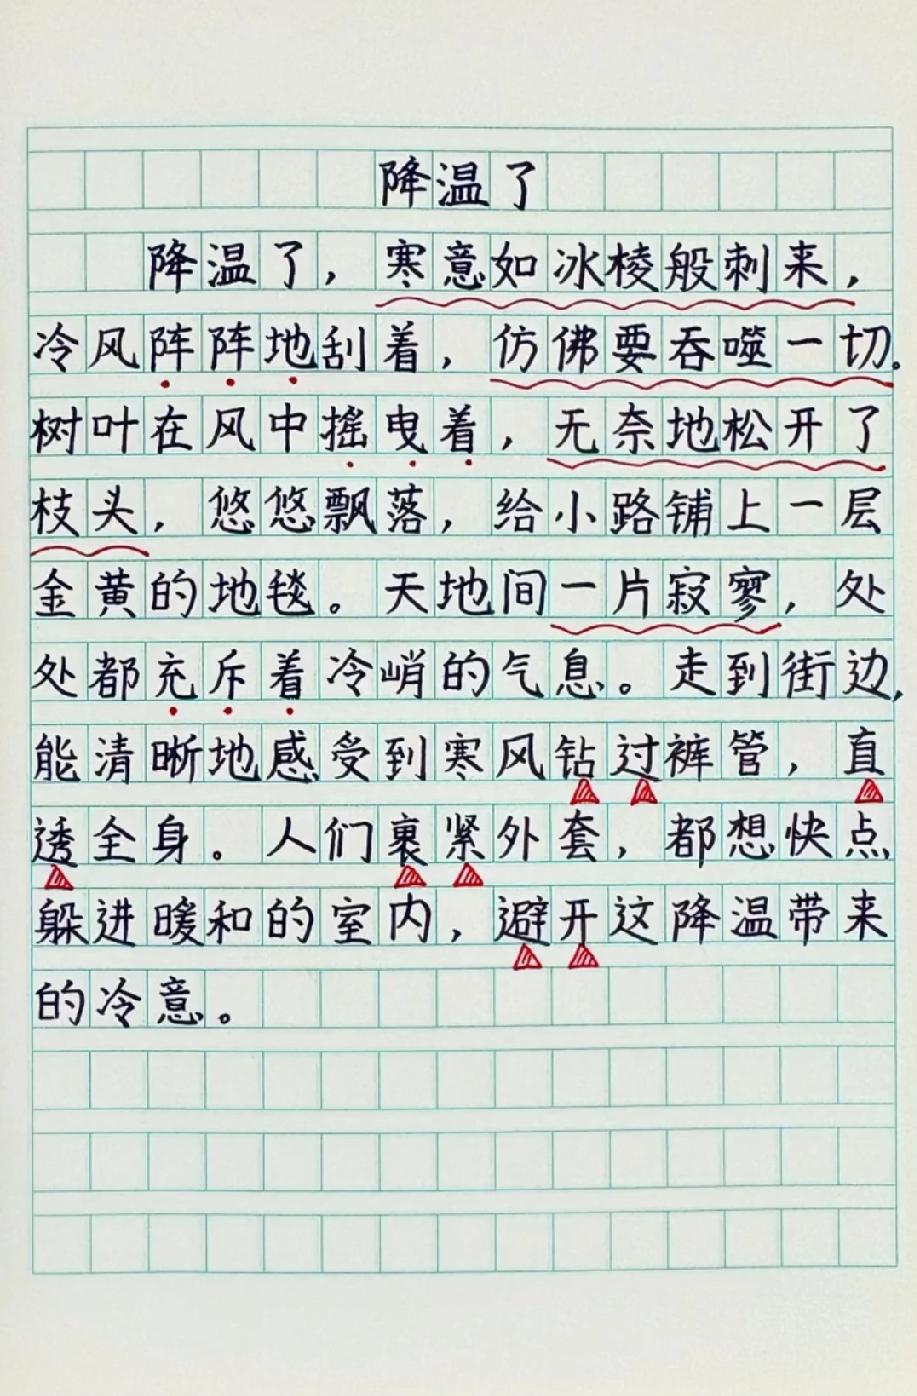 降温了
降温了，寒意如冰棱般刺来，
冷风阵阵地刮着，仿佛要吞噬一切。
树叶在风中摇曳着，无奈地松开了
枝头，悠悠飘落，给小路铺上一层
金黄的地毯。天地间一片寂寥，处
处都充斥着冷峭的气息。走到街边，
能清晰地感受到寒风钻过裤管，直
透全身。人们裹紧外套，都想快点
躲进暖和的室内，避开这降温带来
的冷意。